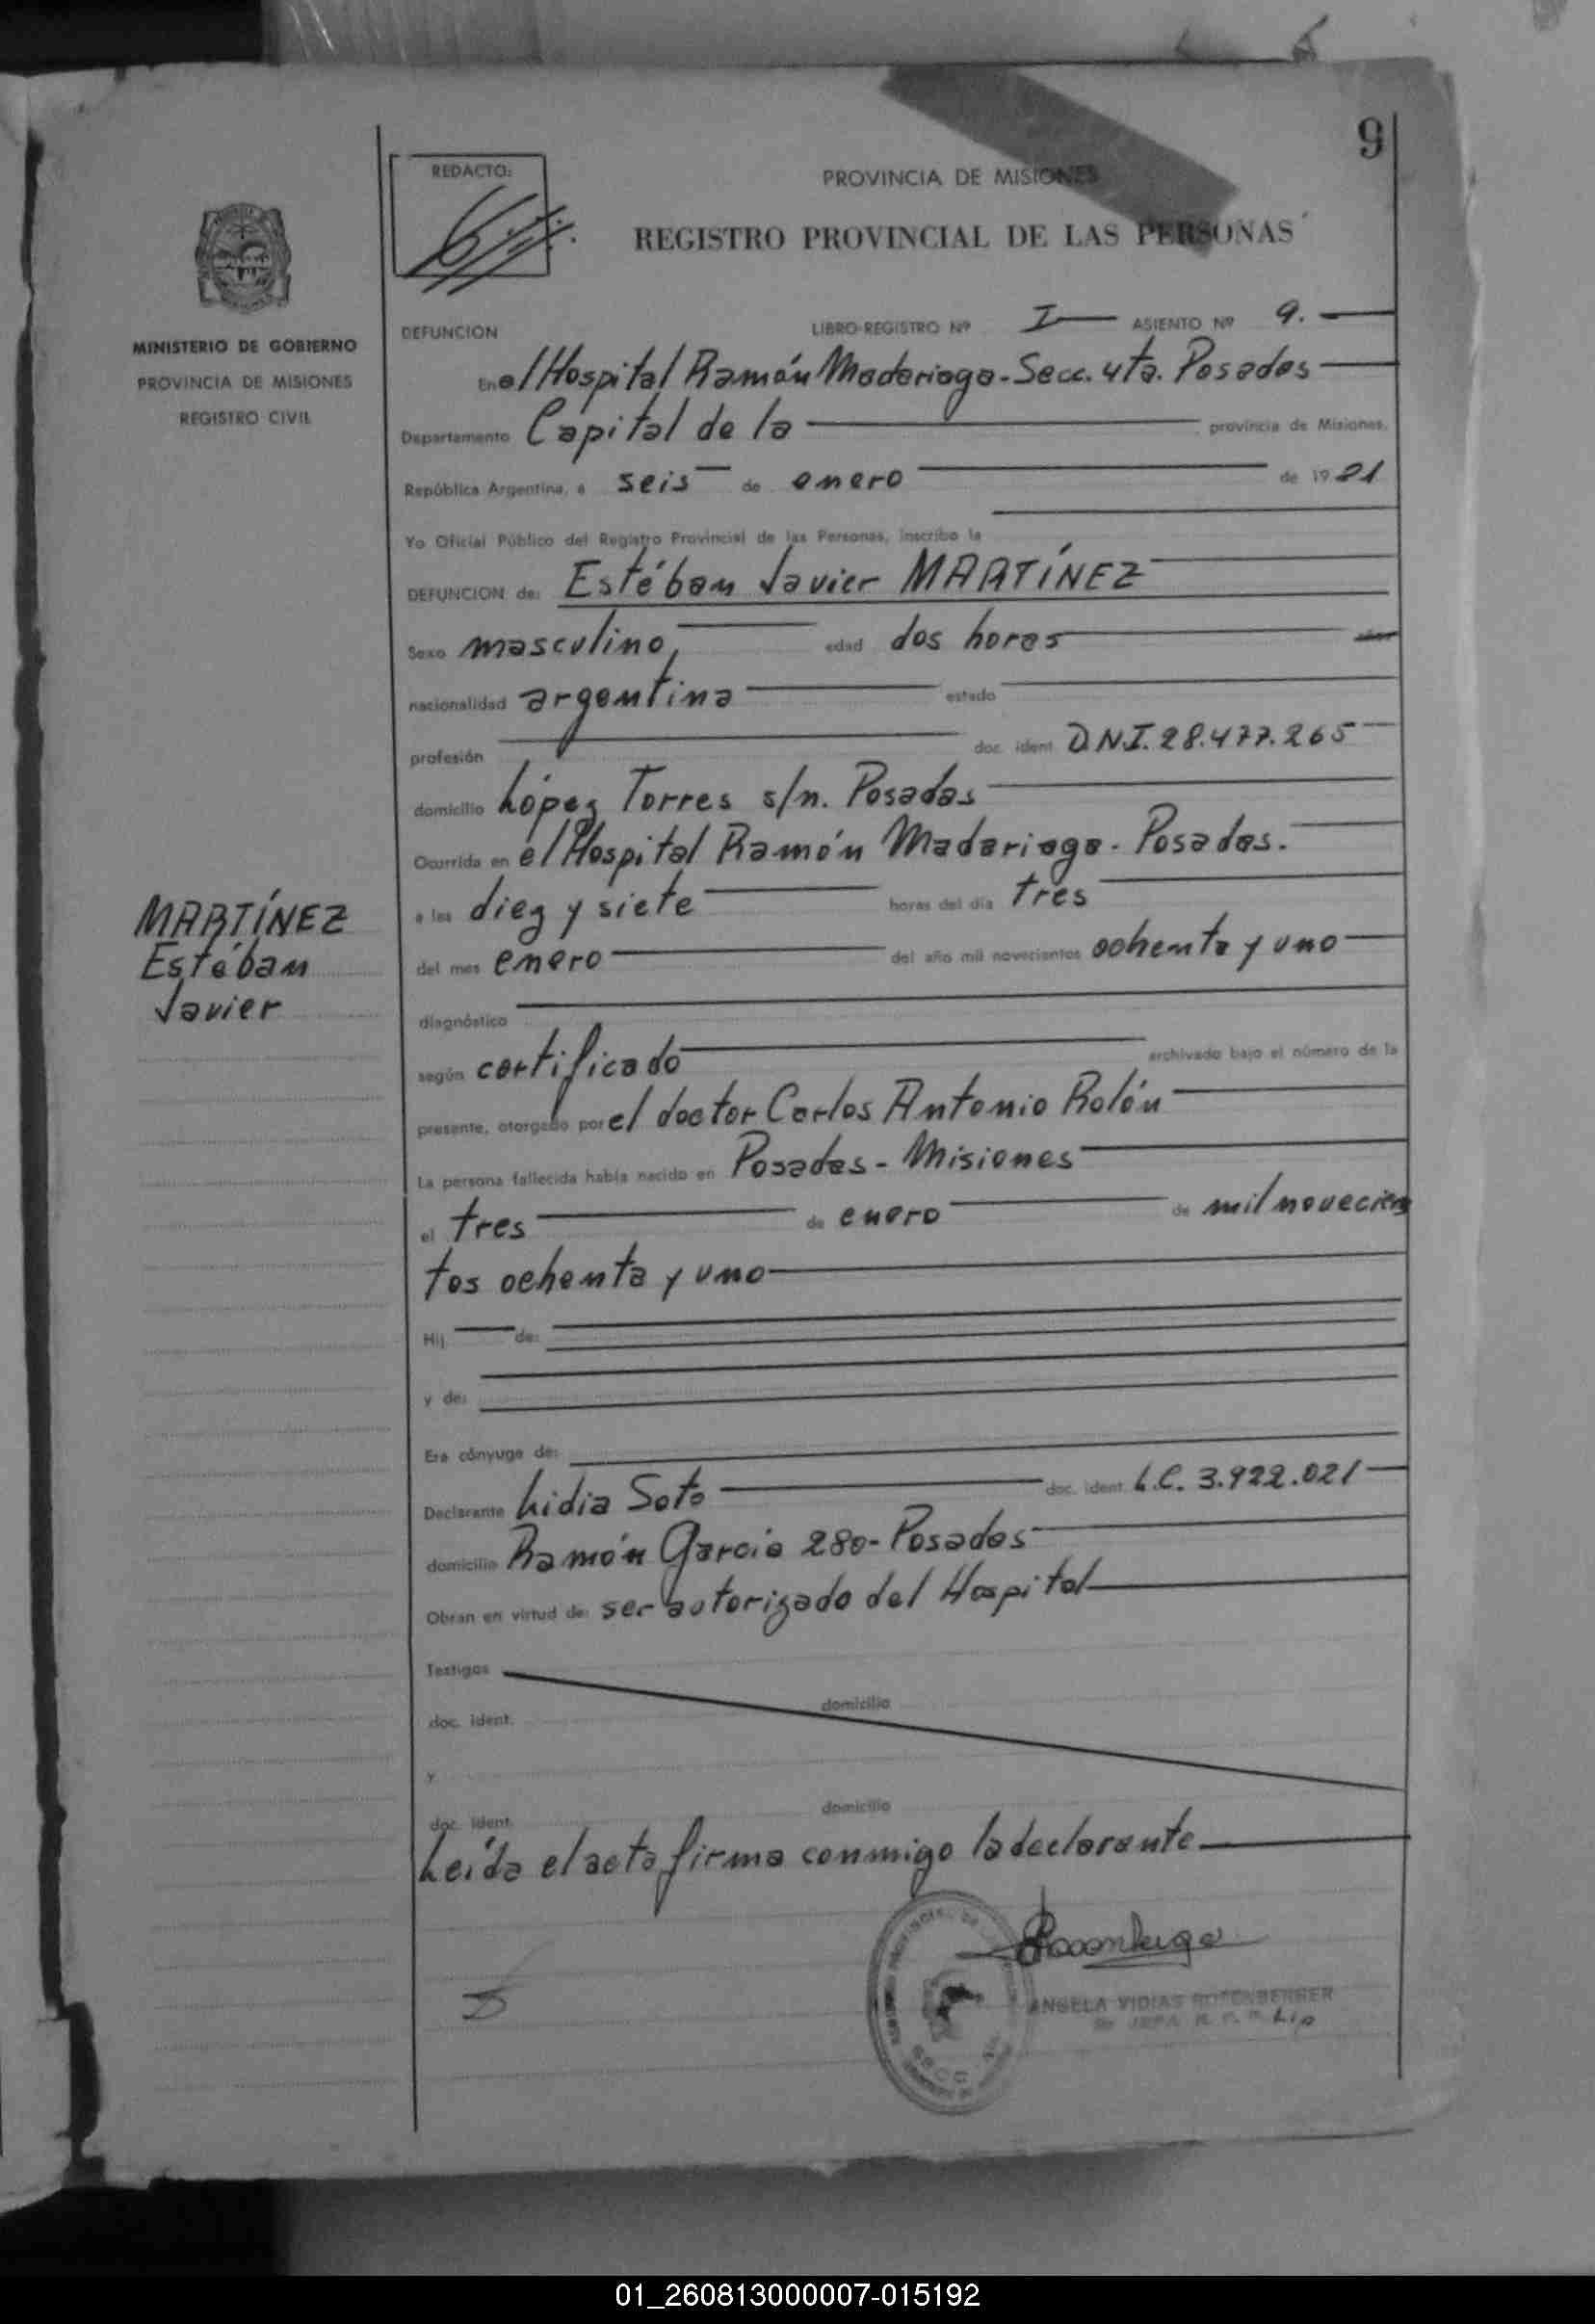 9
REDACTO:
PROVINCIA DE MISIONES
REGISTRO PROVINCIAL DE LAS PERSONAS
MINISTERIO DE GOBIERNO
PROVINCIA DE MISIONES
REGISTRO CIVIL
DEFUNCION LIBRO-REGISTRO Nº I ASIENTO Nº 9.
En el Hospital Ramón Madariaga - Secc. 4ta. Posadas
Departamento Capital de la provincia de Misiones,
República Argentina, a seis de enero de 1981
Yo Oficial Público del Registro Provincial de las Personas, inscribo la
DEFUNCION de: Estéban Javier MARTÍNEZ
Sexo masculino, edad dos horas años
nacionalidad argentina estado
profesión doc. ident. D.N.I. 28.477.265
domicilio López Torres s/n. Posadas
Ocurrida en el Hospital Ramón Madariaga - Posadas.
a las diez y siete horas del día tres
del mes enero del año mil novecientos ochenta y uno
diagnóstico
según certificado archivado bajo el número de la
presente, otorgado por el doctor Carlos Antonio Rolón
La persona fallecida había nacido en Posadas - Misiones
el tres de enero de mil novecien
tos ochenta y uno
Hij de:
y de:
Era cónyuge de:
Declarante Lidia Soto doc. ident. L.C. 3.922.021
domicilio Ramón García 280 - Posadas
Obran en virtud de: ser autorizado del Hospital
Testigos
doc. ident. domicilio
y
doc. ident. domicilio
Leída el acta firma conmigo la declarante
MARTÍNEZ
Estéban
Javier
ANGELA VIDIAS ROSENBERGER
01_260813000007-015192